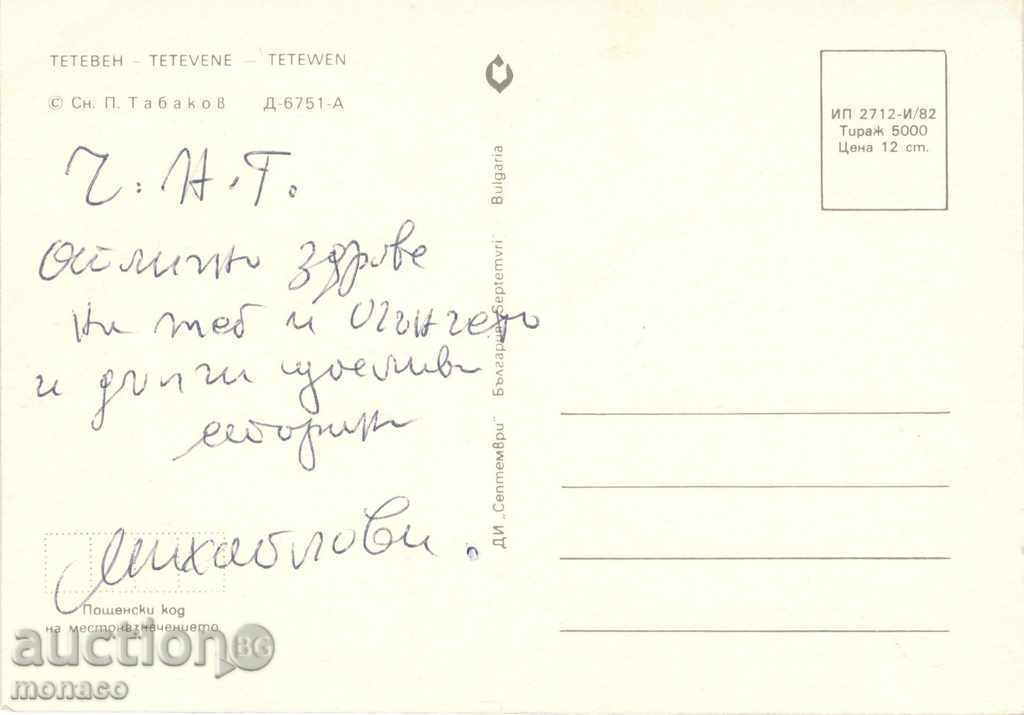 ТЕТЕВЕН – TETEVENE – TETEWEN
© Сн. П. Табаков Д-6751-А
Ч. Н. Г.
Отлично здраве
на теб и Огънчето
и дълги щастливи
старини
Михайлови.
Пощенски код
на местоназначението
ДИ „Септември" България „Septemvri" Bulgaria
ИП 2712-И/82
Тираж 5000
Цена 12 ст.
auction BG
monaco